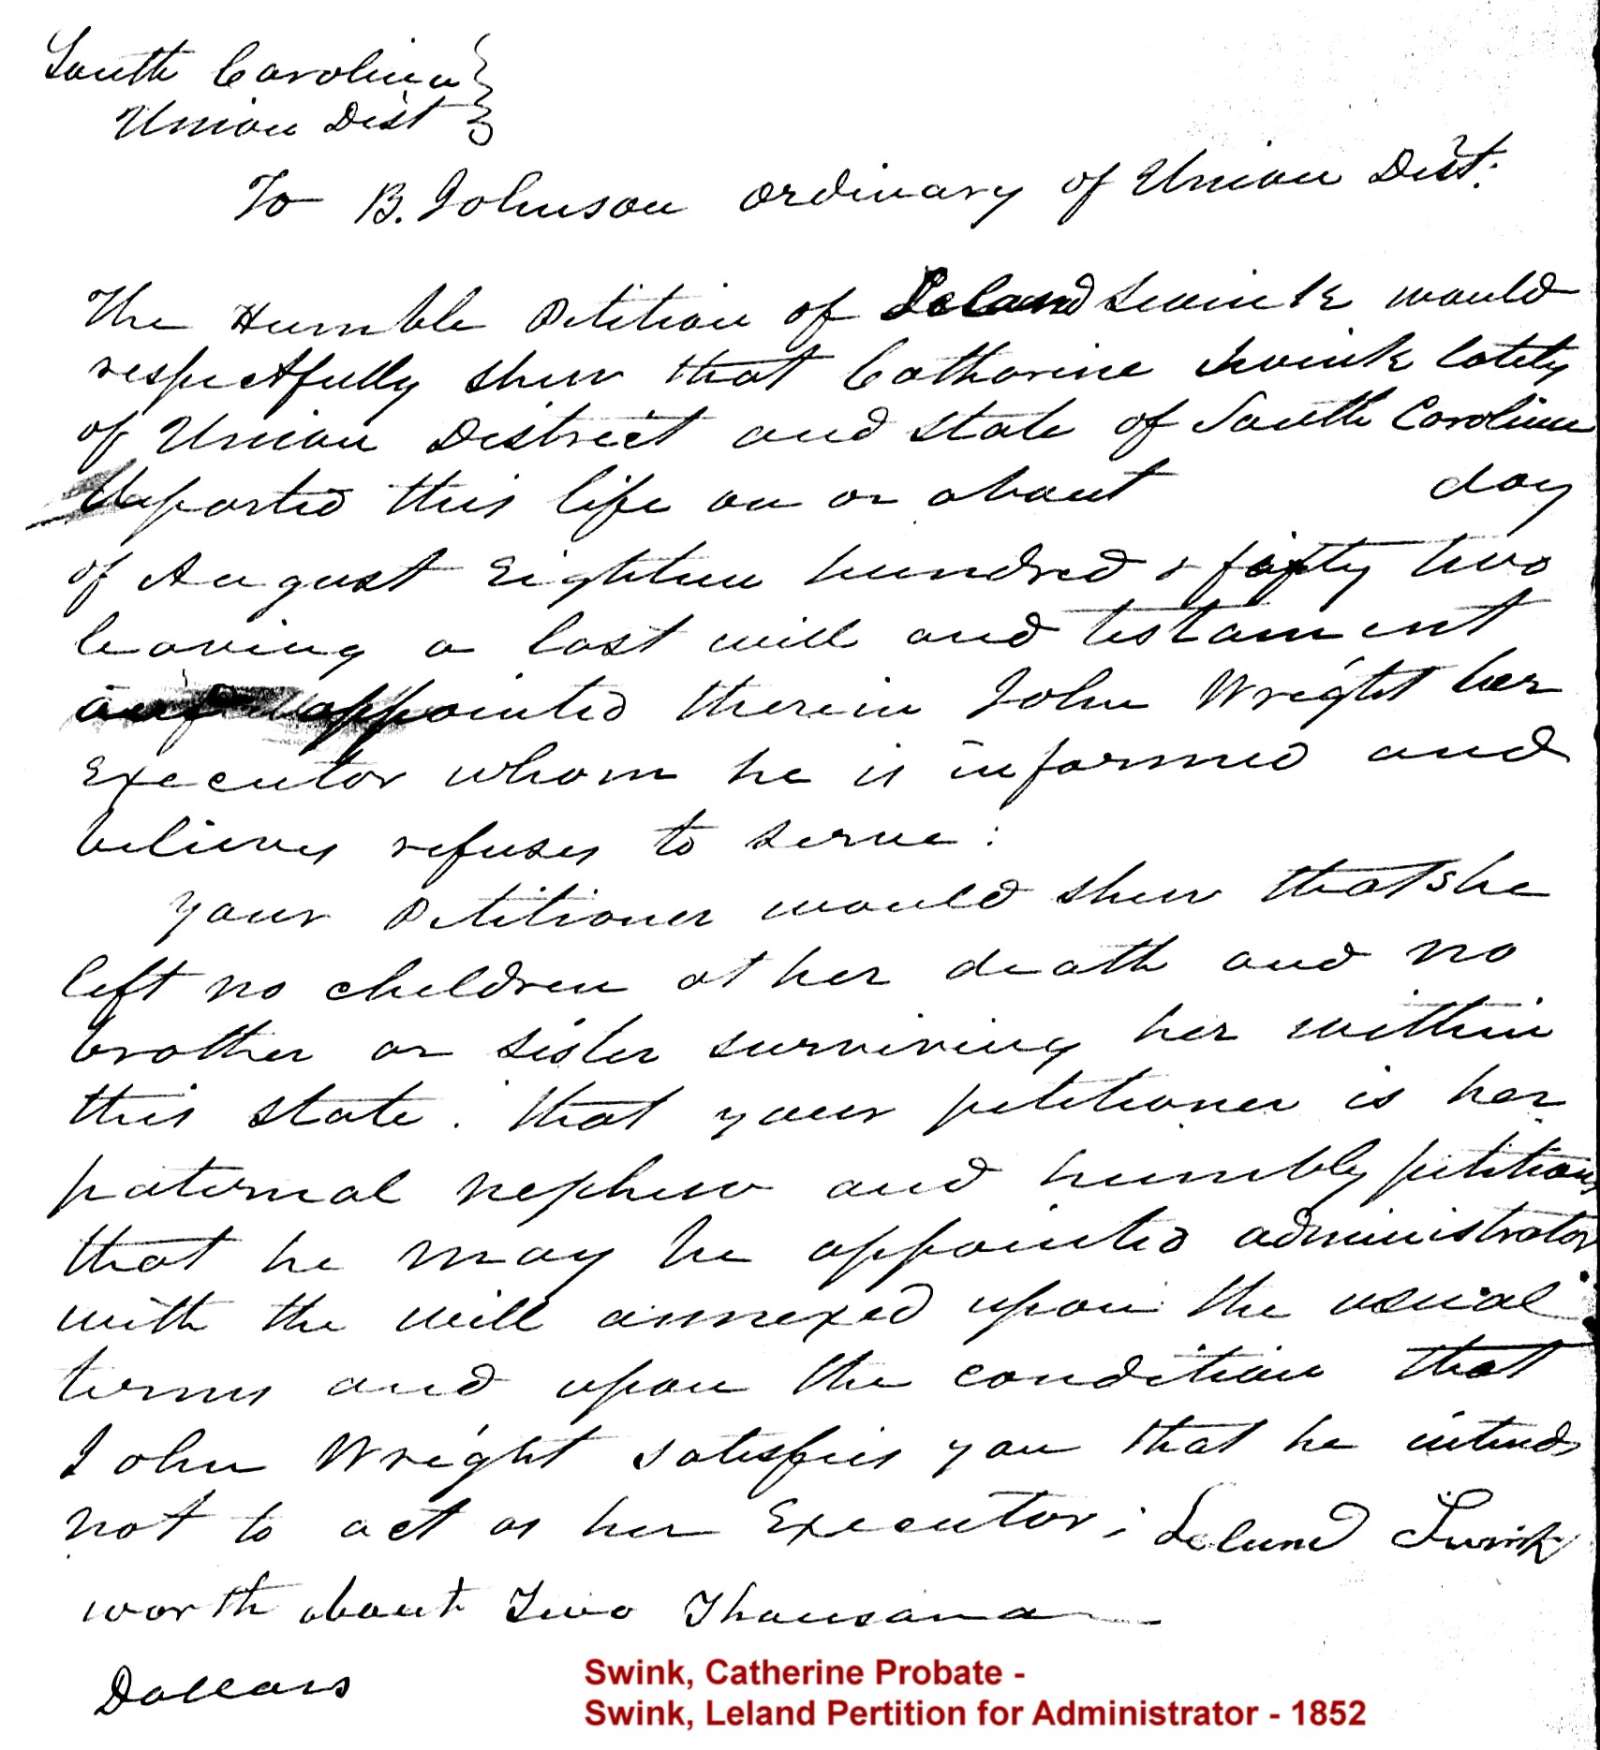 South Carolina }
Union Dist }
To B. Johnson ordinary of Union Dist.
The Humble Petition of Leland Swink would
respectfully shew that Catharine Swink lately
of Union District and State of South Carolina
departed this life on or about day
of August Eighteen hundred & fifty two
leaving a last will and testament
and appointed therein John Wright her
Executor whom he is informed and
believes refuses to serve:
Your Petitioner would shew that she
left no children at her death and no
brother or sister surviving her within
this state. That your petitioner is her
paternal nephew and humbly petitions
that he may be appointed administrator
with the will annexed upon the usual
terms and upon the condition that
John Wright satisfies you that he intends
not to act as her Executor; Leland Swink
worth about Two Thousand
Dollars
Swink, Catherine Probate -
Swink, Leland Pertition for Administrator - 1852